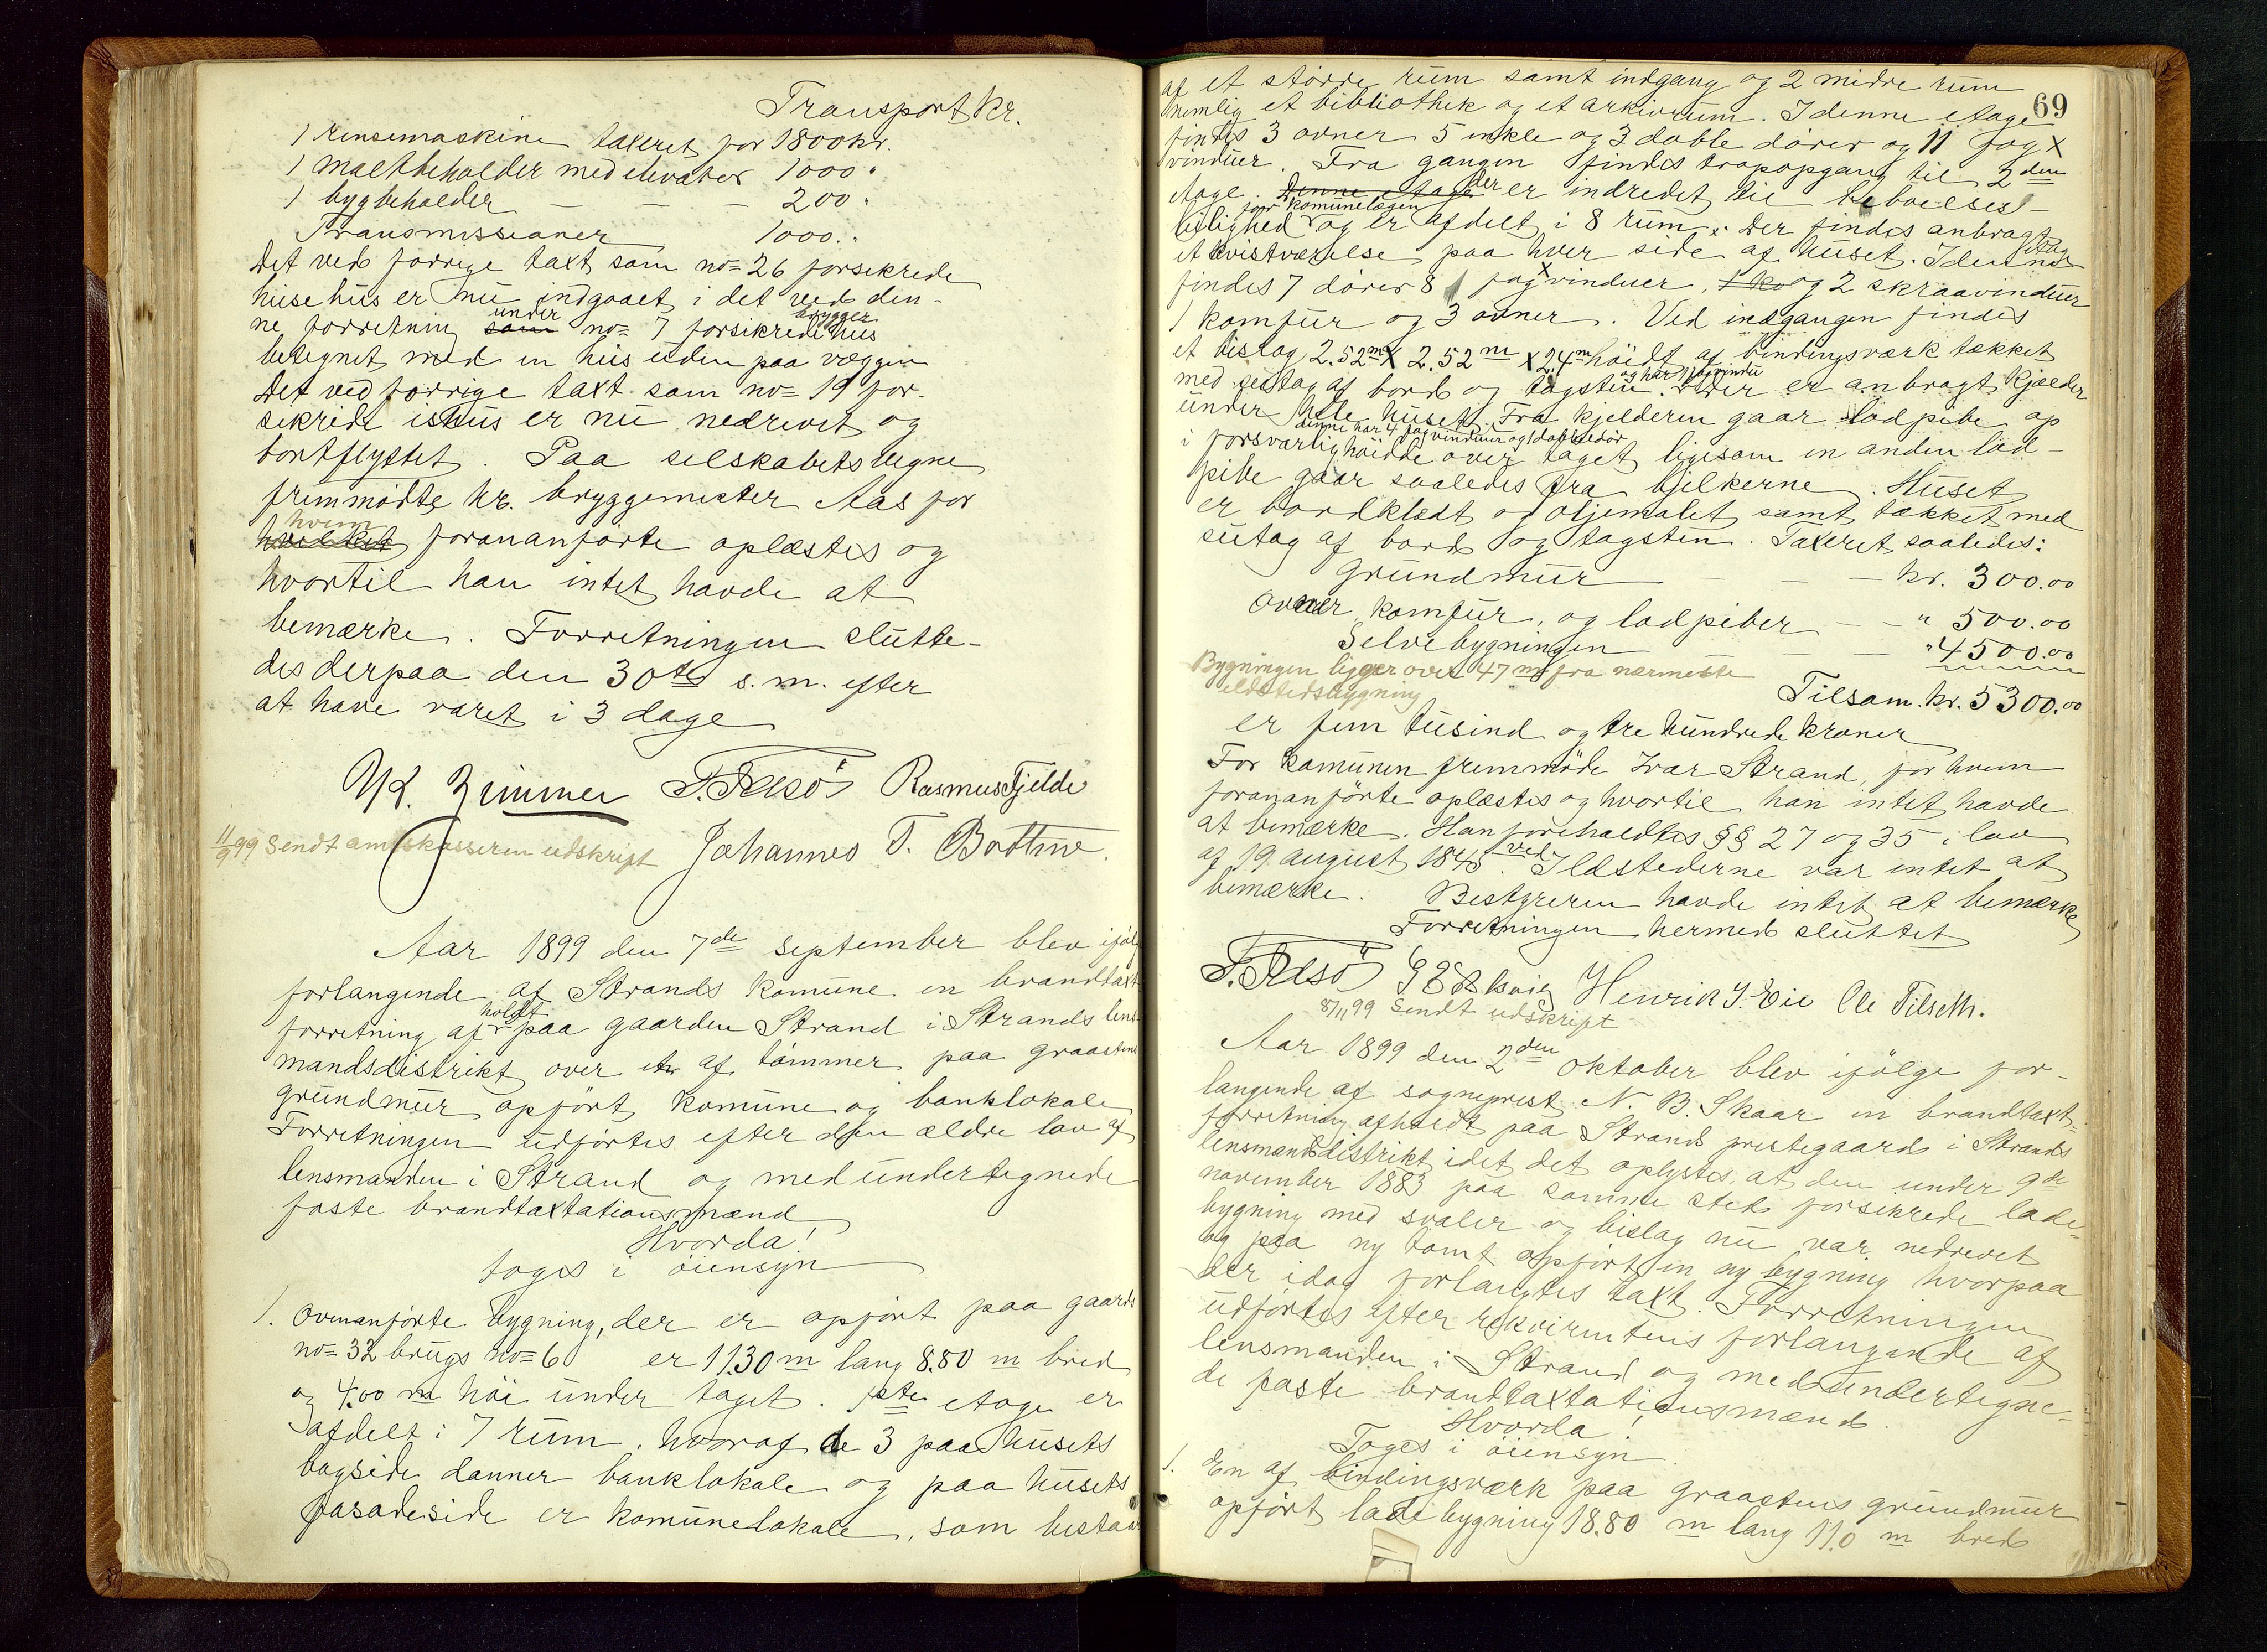 Transport kr.
1 rensemaskine taxeret for 1800 kr.
1 maltbeholder med elevator 1000 "
1 bygbeholder — — — 200 "
Transmissioner 1000. "
Det ved forrige taxt som no= 26 forsikrede
huse hus er nu indgaaet i det ved den-
ne forretning som under no= 7 forsikrede brygger hus
betegnet med en hus uden paa væggen
Det ved forrige taxt som no= 19 for-
sikrede ishus er nu nedrevet og
bortflyttet. Paa selskabets vegne
fremmødte hr. bryggemester Aas for
hvilket hvem forananførte oplæstes og
hvortil han intet havde at
bemærke. Forretningen slutte-
des derpaa den 30te s. m. efter
at have varet i 3 dage
Zimmer T. Resö Rasmus Fjelde
11/9 99 Sendt amtskasseren udskript Johannes T. Botthne.
Aar 1899 den 7de september blev ifølg
forlangende af Strands komune en brandtaxt
forretning af holdt paa gaarden Strand i Strands lens-
mandsdistrikt over et af tømmer paa graastens
grundmur opført komune og banklokale
Forretningen udførtes efter den ældre lov af
lensmanden i Strand og med undertegnede
faste brandtaxtationsmænd
Hvorda!
toges i öiensyn
1. Ovenanførte bygning, der er opført paa gaards
no= 32 brugs no= 6 er 11.30 m lang 8.80 m bred
og 4.00 m höi under taget. 1ste etage er
afdelt i 7 rum, hvoraf de 3 paa husets
bagside danner banklokale og paa husets
fasadeside er komunelokale, som bestaar
69
af et större rum samt indgang og 2 midre rum
nemlig et bibliothek og et arkivrum. I denne etage
findes 3 ovner 5 enkle og 3 doble dörer og 11 fag x
vinduer. Fra gangen findes trapopgang til 2den
etage. Denne etage der er indredet til beboelses-
leilighed for komunelægen og er afdelt i 8 rum. Der findes anbragt
et kvistværelse paa hver side af huset. I denne etage
findes 7 dörer 8 fag x vinduer, 1 ko og 2 skraavinduer
1 komfur og 3 ovner. Ved indgangen findes
et bislag 2.52 m x 2.52 m x 2.4 m höidt af bindingsværk tækket
med sutag af bord og tagsten og har 1 fag vindu. Der er anbragt kjælder
under hele huset. Fra kjelderen gaar lodpibe op
denne har 4 fag vinduer og 1 dobbeldör
i forsvarlig höidde over taget ligesom en anden lod-
pibe gaar saaledes fra bjelkerne. Huset
er bordklædt og oljemalet samt tækket med
sutag af bord og tagsten. Taxeret saaledes:
Grundmur — — — kr. 300.00
Ovner, komfur, og lodpiber — — " 500.00
Selve bygningen — — " 4500.00
Bygningen ligger over 47 m fra nærmeste
ildstedsbygning
Tilsam. kr. 5300.00
er fem tusind og tre hundrede kroner
For komunen fremmöde Ivar Strand, for hvem
forananførte oplæstes og hvortil han intet havde
at bemærke. Han foreholdtes §§ 27 og 35 i lov
af 19 august 1845. ved Ildstederne var intet at
bemærke. Bestyreren havde intet at bemærke
Forretningen hermed sluttet
T. Resö Henrik J. Eie Ole Tilseth.
8/11 99 Sendt udskript
Aar 1899 den 2den oktober blev ifölge for-
langende af sogneprest N. B. Skaar en brandtaxt-
forretning afholdt paa Strands prestegaard i Strands
lensmandsdistrikt idet det oplystes, at den under 9de
november 1883 paa samme sted forsikrede lade
bygning med svaler og bislag nu var nedrevet
og paa ny tomt opført en ny bygning hvorpaa
der idag forlangtes taxt. Forretningen
udførtes efter rekvirentens forlangende af
lensmanden i Strand og med undertegne-
de faste brandtaxtationsmænd.
Hvorda!
Toges i öiensyn
1. En af bindingsværk paa graastens grundmur
opført ladebygning 18.80 m lang 11.0 m bred